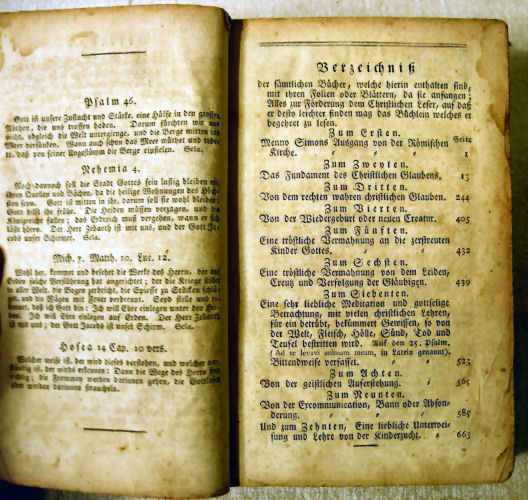 Psalm 46.
Gott ist unsere Zuflucht und Stärke, eine Hülfe in den grossen
Nöthen, die uns troffen haben. Darum fürchten wir uns
nicht, obgleich die Welt untergienge, und die Berge mitten ins
Meer versänken. Wann auch schon das Meer wüthet und tobet
te, daß von seiner Ungestümm die Berge einfielen. Sela.
Nehemia 4.
Noch dannoch soll die Stadt Gottes fein lustig bleiben mit
ihren Quellen und Bächen, da die heilige Wohnungen des Höch-
sten seyn. Gott ist mitten in ihr, darum soll sie wohl bleiben;
Gott hilft ihr frühe. Die Heiden müssen verzagen, und die
Königreich fallen; das Erdreich muß vergehen, wann er sich
läßt hören. Der Herr Zebaoth ist mit uns, und der Gott Ja-
cobs unser Schirmer. Sela.
Mich. 7. Matth. 10. Luc. 12.
Wohl her, kommet und besehet die Werke des Herrn, der auf
Erden solche Verstöhrung hat angerichtet; der die Kriege stillet
in aller Welt, die Bogen zerbricht, die Spiesse zu Stücken schläget,
und die Wägen mit Feuer verbrennt. Seyd stille und er-
kennet, daß ich Gott bin: Ich will Ehre einlegen unter den Hei-
den. Ich will Ehre einlegen auf Erden. Der Herr Zebaoth
ist mit uns; der Gott Jacobs ist unser Schirm. Sela.
Hosea 14 Cap. 10 vers.
Welcher weiß ist, der wird dieses verstehen, und welcher ver-
ständig ist, der wird erkennen: Dann die Wege des Herrn sind
richtig; die Frommen werden darinnen gehen, die Gottlosen
aber werden darinnen straucheln.
Verzeichniß
der sämtlichen Bücher, welche hierin enthalten sind,
mit ihren Folien oder Blättern, da sie anfangen;
Alles zur Förderung dem Christlichen Leser, auf daß
er desto leichter finden mag das Büchlein welches er
begehret zu lesen.
Zum Ersten. Seite
Menno Simons Ausgang von der Römischen
Kirche. 1
Zum Zweyten.
Das Fundament des Christlichen Glaubens. 13
Zum Dritten.
Von dem rechten wahren christlichen Glauben. 244
Zum Vierten.
Von der Wiedergeburt oder neuen Creatur. 405
Zum Fünften.
Eine tröstliche Vermahnung an die zerstreuten
Kinder Gottes. 432
Zum Sechsten.
Eine tröstliche Vermahnung von dem Leiden,
Creutz und Verfolgung der Gläubigen. 439
Zum Siebenten.
Eine sehr liebliche Meditation und gottselige
Betrachtung, mit vielen christlichen Lehren,
für ein betrübt, bekümmert Gewissen, so von
der Welt, Fleisch, Hölle, Sünd, Tod und
Teufel bestritten wird. Auf den 25. Psalm,
(Ad te levavi animam meam, in Latein genannt),
Bittendweise verfasset. 523
Zum Achten.
Von der geistlichen Auferstehung. 565
Zum Neunten.
Von der Excommunication, Bann oder Abson-
derung. 585
Und zum Zehnten, Eine liebliche Unterwei-
sung und Lehre von der Kinderzucht. 663